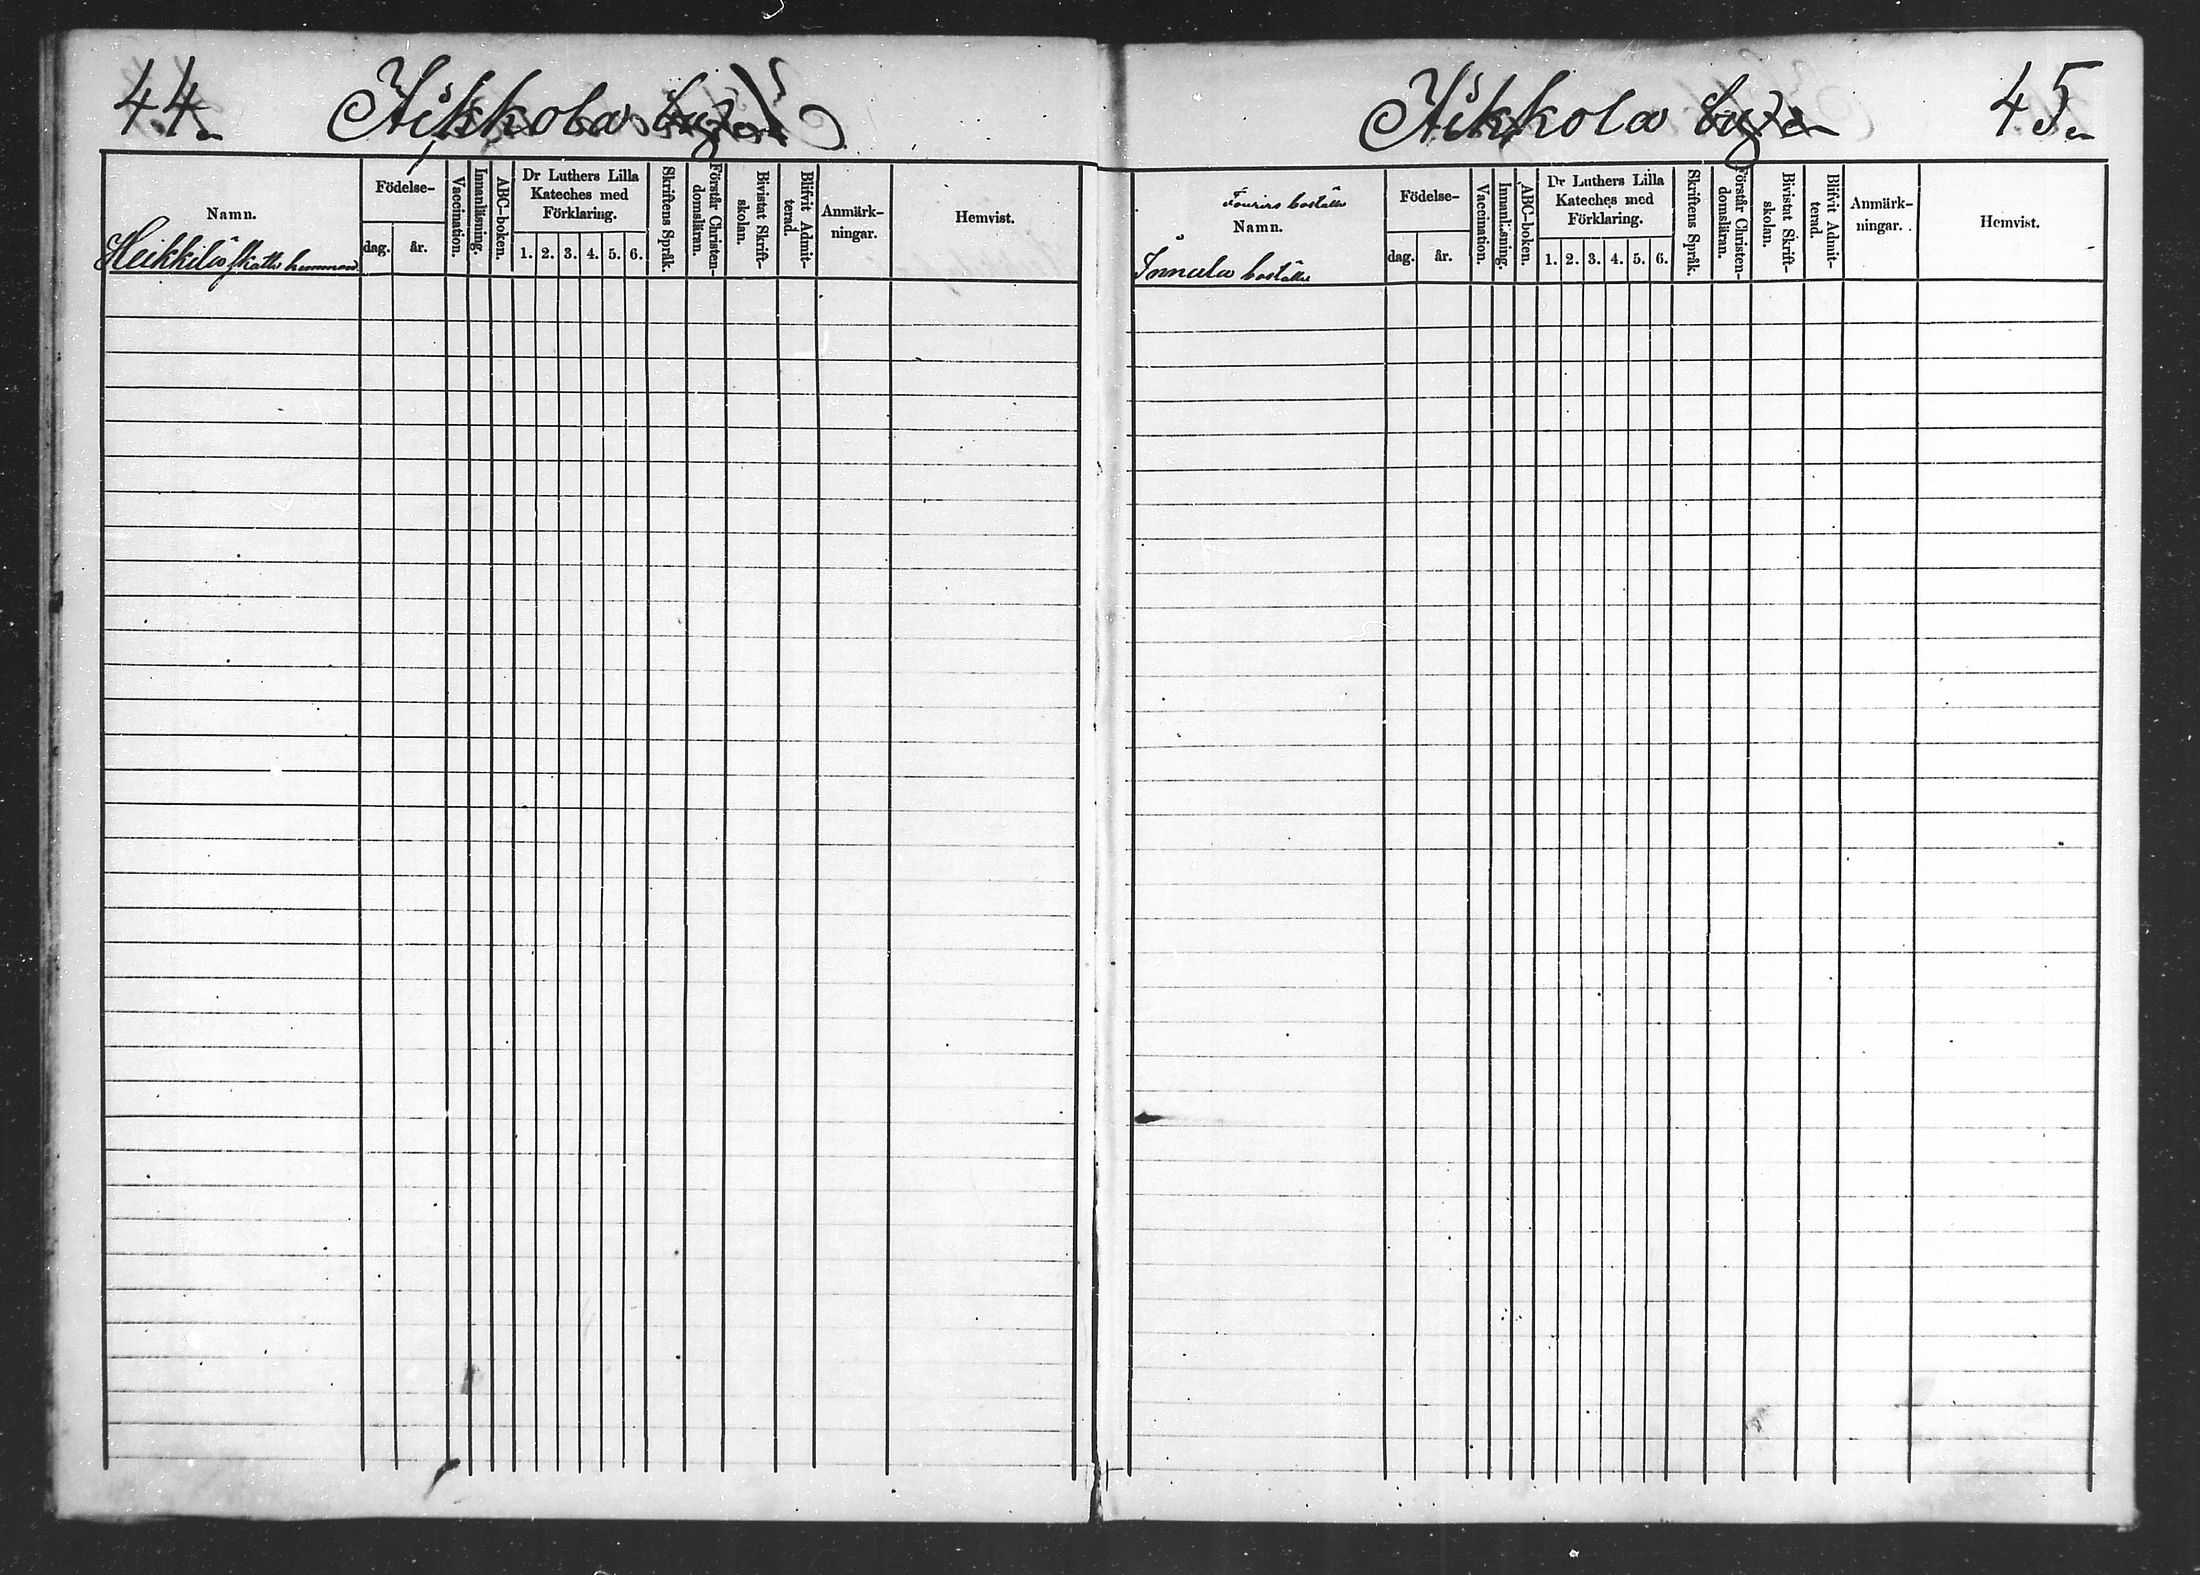 44.
Hikkola by
Namn.
Heikkilä skatte hemman
Födelse-
dag.
år.
Vaccination.
Innanläsning.
ABC-boken.
Dr Luthers Lilla
Kateches med
Förklaring.
1. 2. 3. 4. 5. 6.
Skriftens Språk.
Förstår Christen-
domsläran.
Bivistat Skrift-
skolan.
Blifvit Admit-
terad.
Anmärk-
ningar.
Hemvist.
Hikkola by
45.
Fourirs boställe
Namn.
boställe
Födelse-
dag.
år.
Vaccination.
Innanläsning.
ABC-boken.
Dr Luthers Lilla
Kateches med
Förklaring.
1. 2. 3. 4. 5. 6.
Skriftens Språk.
Förstår Christen-
domsläran.
Bivistat Skrift-
skolan.
Blifvit Admit-
terad.
Anmärk-
ningar.
Hemvist.